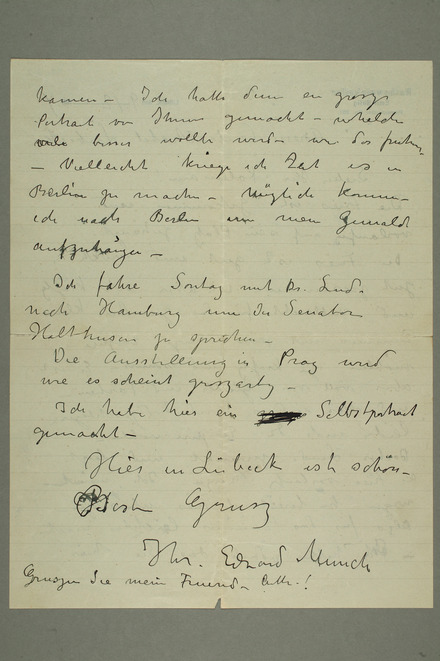 kamen – Ich hatte denn en grosze
Portrait von Ihnen gemacht – whelche
viele besser wollte werden wie das fruhere
– Vielleicht kriege ich Zeit es in
Berlin zu machen – Möglich komme
ich nach Berlin um mein Gemälde
aufzuhängen –
Ich fahre Sontag mit Dr. Lind.
nach Hamburg um die Senator
Holthusen zu sprechen –
Die Ausstellung in Prag wird
wie es scheint groszartig –
Ich habe hier ein Selbstportrait
gemacht –
Hier in Lübeck ist schön –
Beste Grusz
Ihr. Edvard Munch
Gruszen Sie mein Freund